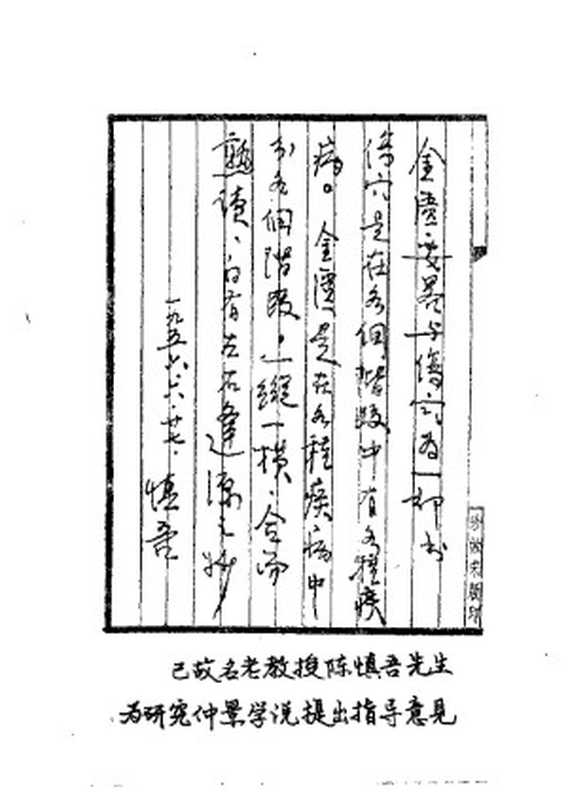 金匮要略与傷寒為一部书
傷寒是在各個階段中有各種疾
病。金匮是在各種疾病中
分各個階段，一縱一横、合而
熟读、自有左右逢源之妙
一九五六.六.廿七.慎吾
已故名老教授陈慎吾先生
为研究仲景学说提出指导意见